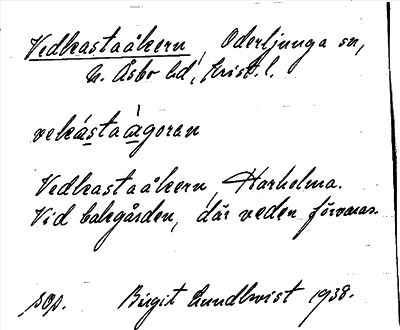 Vedkastaåkern, Oderljunga sn,
N. Åsbo hd, Krist. l.
vekástaàgoran
Vedkastaåkern, Harholma.
Vid bakgården, där veden förvaras.
pop. Birgit Lundkvist 1938.